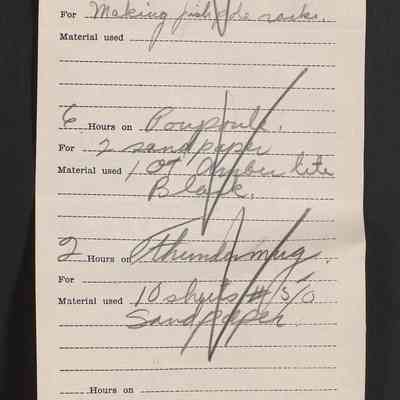 For Making fish pole racks.
Material used
6 Hours on Poupoule.
For 2 sandpaper
Material used 1 qt Amberlite
Black.
2 Hours on Thundermug.
For
Material used 10 sheets # 3/0
Sandpaper.
Hours on